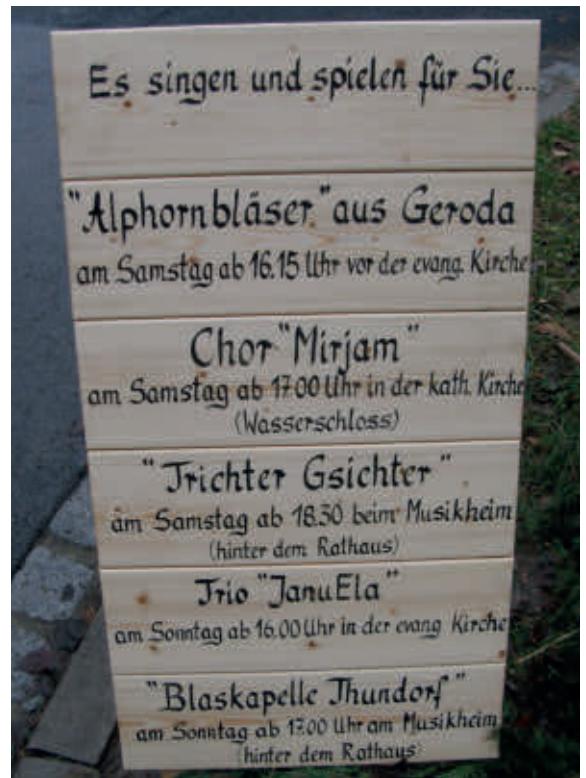 Es singen und spielen für Sie...
"Alphornbläser" aus Geroda
am Samstag ab 16.15 Uhr vor der evang. Kirche
Chor "Mirjam"
am Samstag ab 17.00 Uhr in der kath. Kirche
(Wasserschloss)
"Trichter Gsichter"
am Samstag ab 18.30 beim Musikheim
(hinter dem Rathaus)
Trio "JanuEla"
am Sonntag ab 16.00 Uhr in der evang. Kirche
"Blaskapelle Thundorf"
am Sonntag ab 17.00 Uhr am Musikheim
(hinter dem Rathaus)